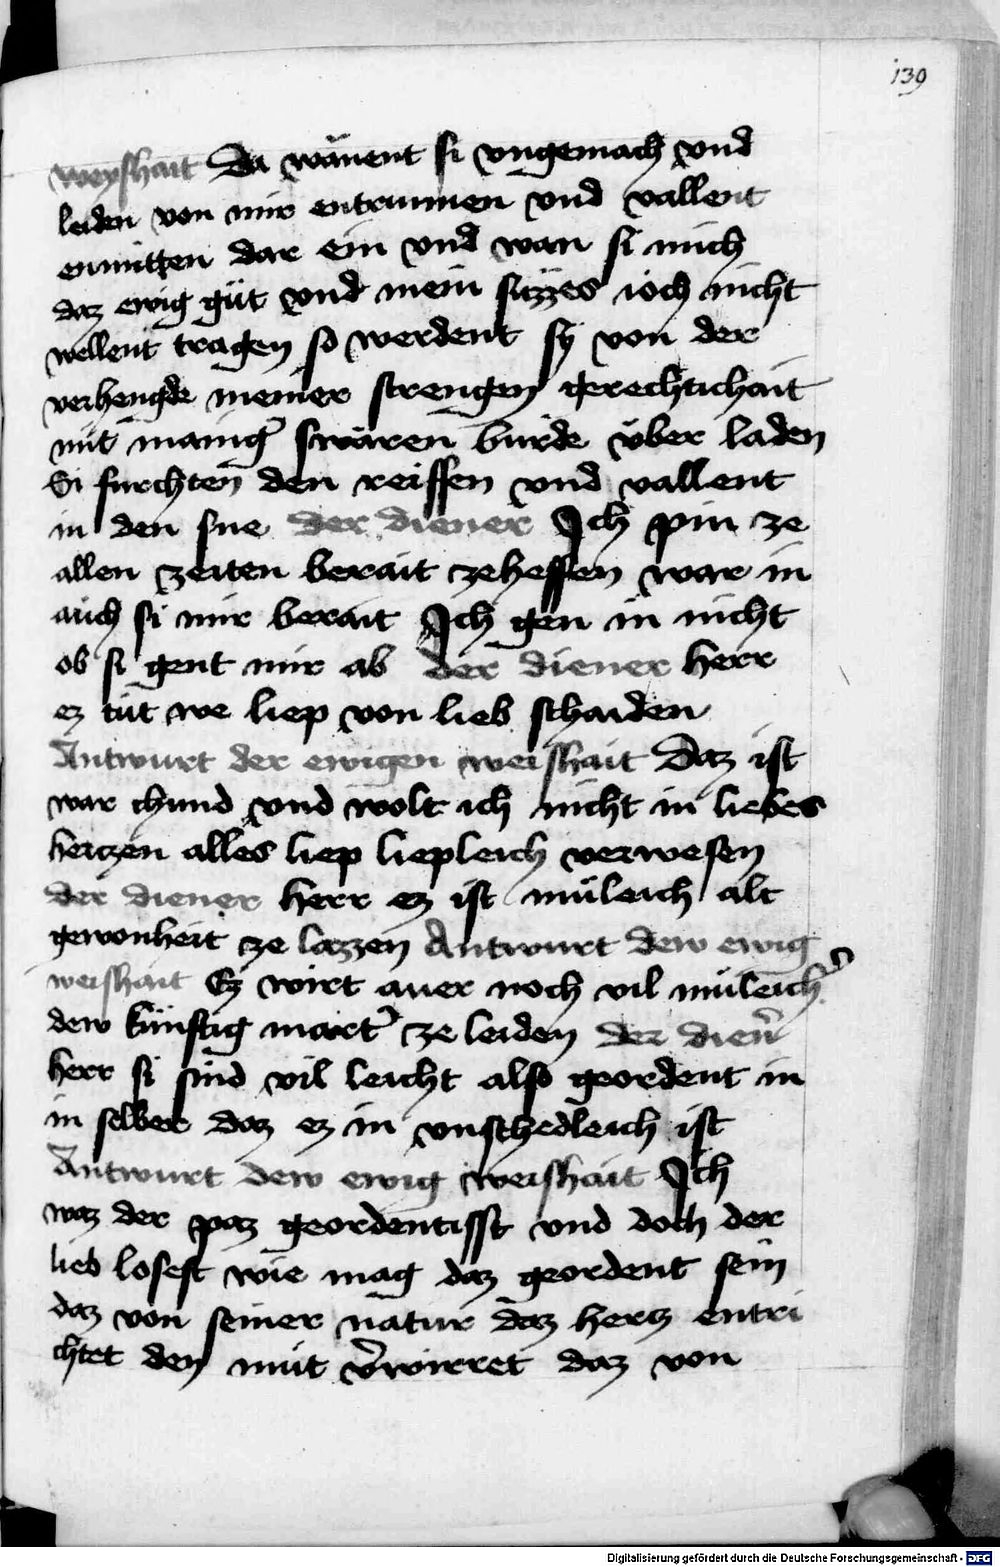 139
weyshait Da wänent si vngemach vnd
leiden von mir entrinnen vnd vallent
enmitten dar ein vnd wan si mich
daz ewig güt vnd mein süzzes ioch nicht
wellent tragen so werdent sy von der
verhengde meiner strengen gerechtichait
mit manig͛ swären bürde über laden
Si furchten den reiffen vnd vallent
in den sne der diener Ich pin ze
allen zeiten berait zehelffen wär in
auch si mir berait Ich gen in nicht
ob si gent mir ab der diener herr
ez tüt we liep von lieb schaiden
Antwurt der ewigen weishait Daz ist
war chund vnd wolt ich nicht in liebes
hertzen alles liep liepleich verwesen
der diener herr ez ist müleich alt
gewonheit ze lazzen Antwurt dew ewig
weishait Ez wirt auer noch vil müleich͛
dew künftig mart͛ ze leiden der dien͛
herr si sind vil leicht also geordent in
in selber daz ez in vnschedleich ist
Antwurt dew ewig weishait Ich
waz der paz geordentisst vnd doch der
lieb losest wie mag daz geordent sein
daz von seiner natur daz hertz entri
chtet den müt v͛wirret daz von
Digitalisierung gefördert durch die Deutsche Forschungsgemeinschaft - DFG